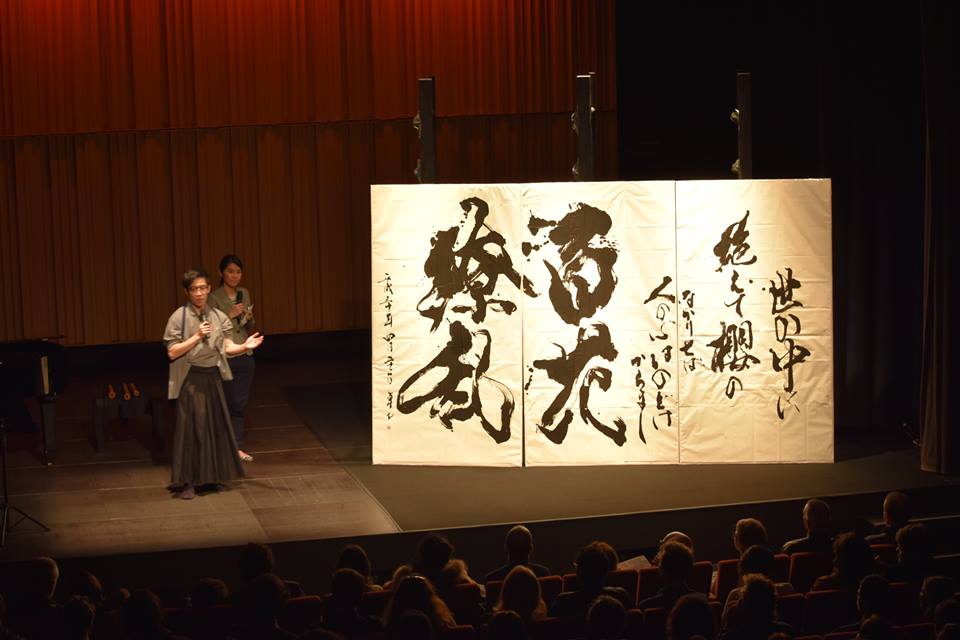 世の中に
絶えて櫻の
なかりせば
人の心はのどけ
からまし
百花
繚乱
平成三十年